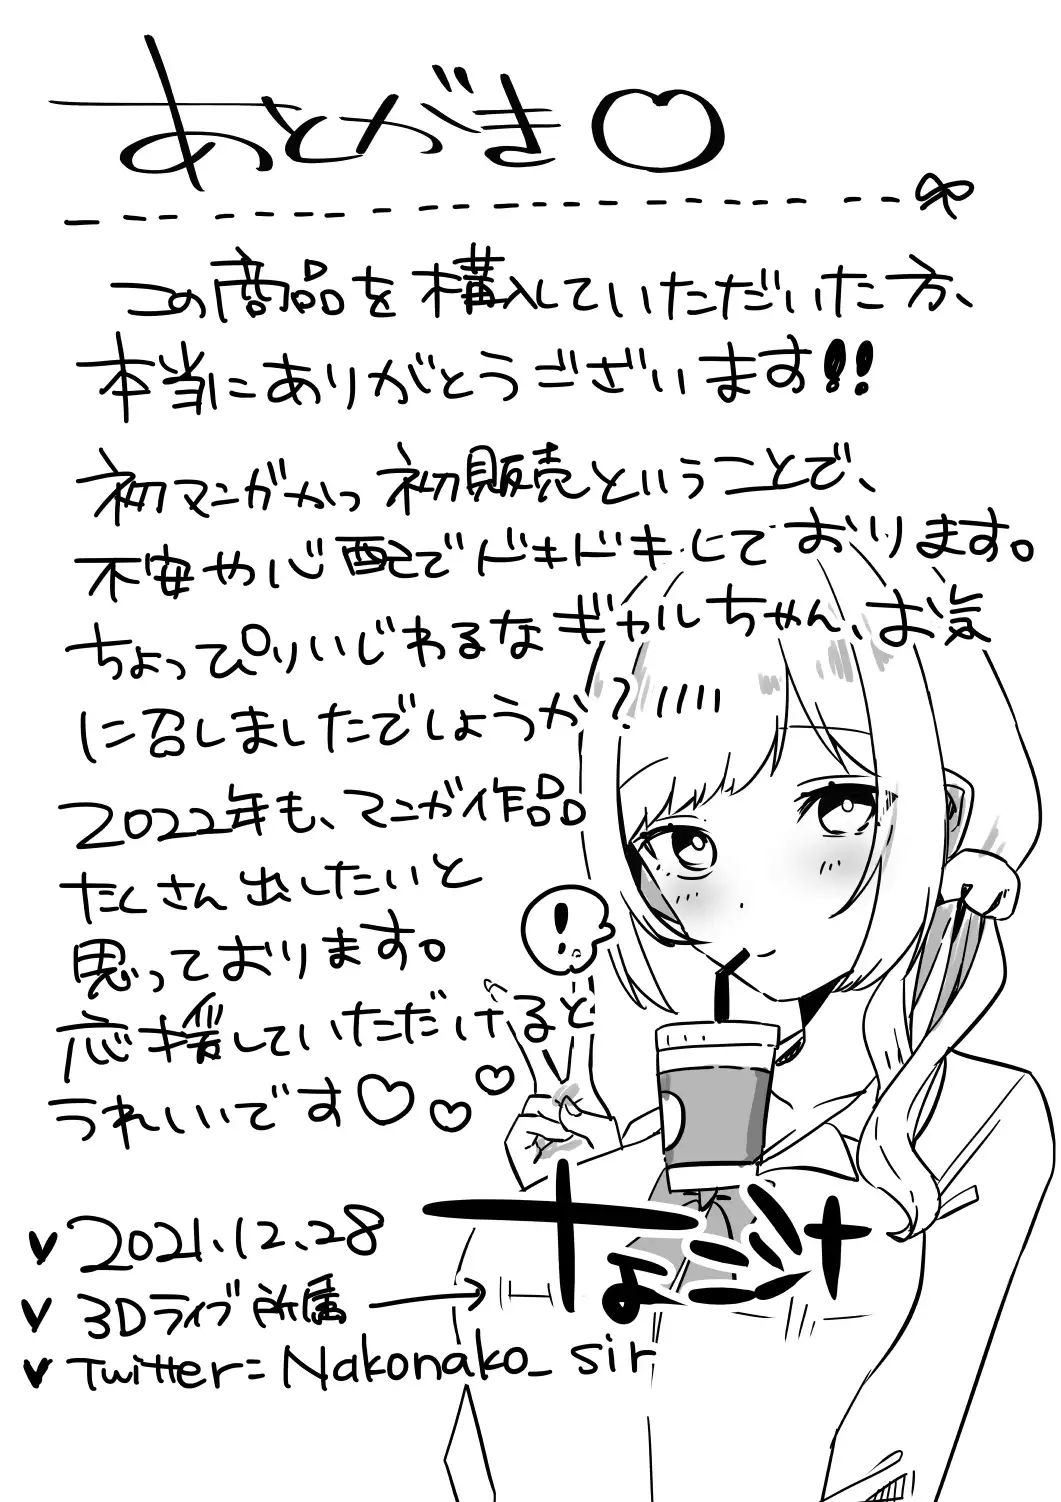 あとがき
この商品を構入していただいた方、
本当にありがとうございます!!
初マンガかつ初販売ということで、
不安や心配でドキドキしております。
ちょっぴりいじわるなギャルちゃん、お気
に召しましたでしょうか?
2022年も、マンガ作品
たくさん出したいと
思っております。
応援していただけると
うれしいです♡♡♡
!
♥2021.12.28
♥3Dライブ所属
♥Twitter=Nakonako_sir